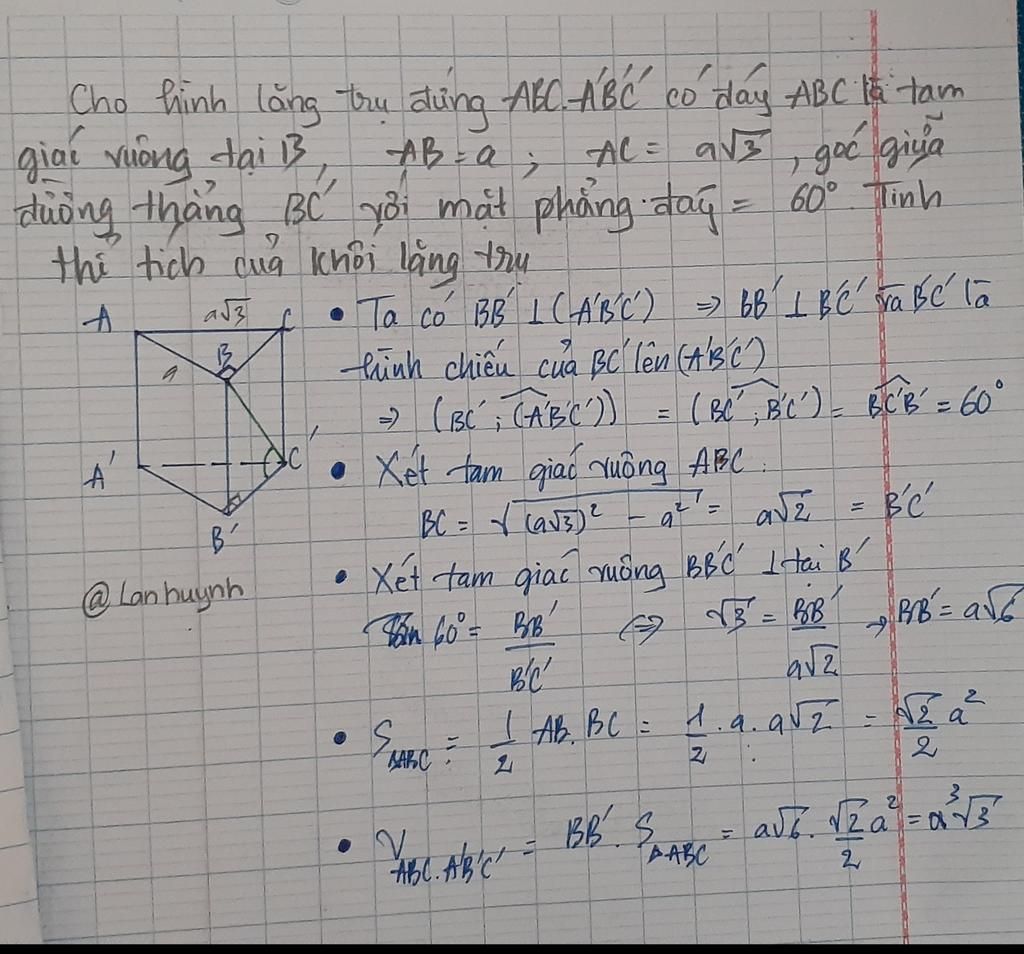 Cho hình lăng trụ đứng ABC.A'B'C' có đáy ABC là tam
giác vuông tại B, AB = a ; AC = a√3 , góc giữa
đường thẳng BC' với mặt phẳng đáy = 60° Tính
thể tích của khối lăng trụ
A a√3 C
B
a
A' C'
B'
@Lanhuynh
• Ta có BB' ⊥ (A'B'C') ⇒ BB' ⊥ B'C' và B'C' là
hình chiếu của BC' lên (A'B'C')
⇒ (BC' ; (A'B'C')) = (BC' ; B'C') = BC'B' = 60°
• Xét tam giác vuông ABC.
BC = √(a√3)² - a² = a√2 = B'C'
• Xét tam giác vuông BB'C' ⊥ tại B'
Tan 60° = BB'/B'C' ⇔ √3 = BB'/a√2 → BB' = a√6
• S△ABC = 1/2 AB. BC = 1/2 . a. a√2 = √2/2 a²
• V ABC.A'B'C' = BB'. S△ABC = a√6. √2/2 a² = a³√3